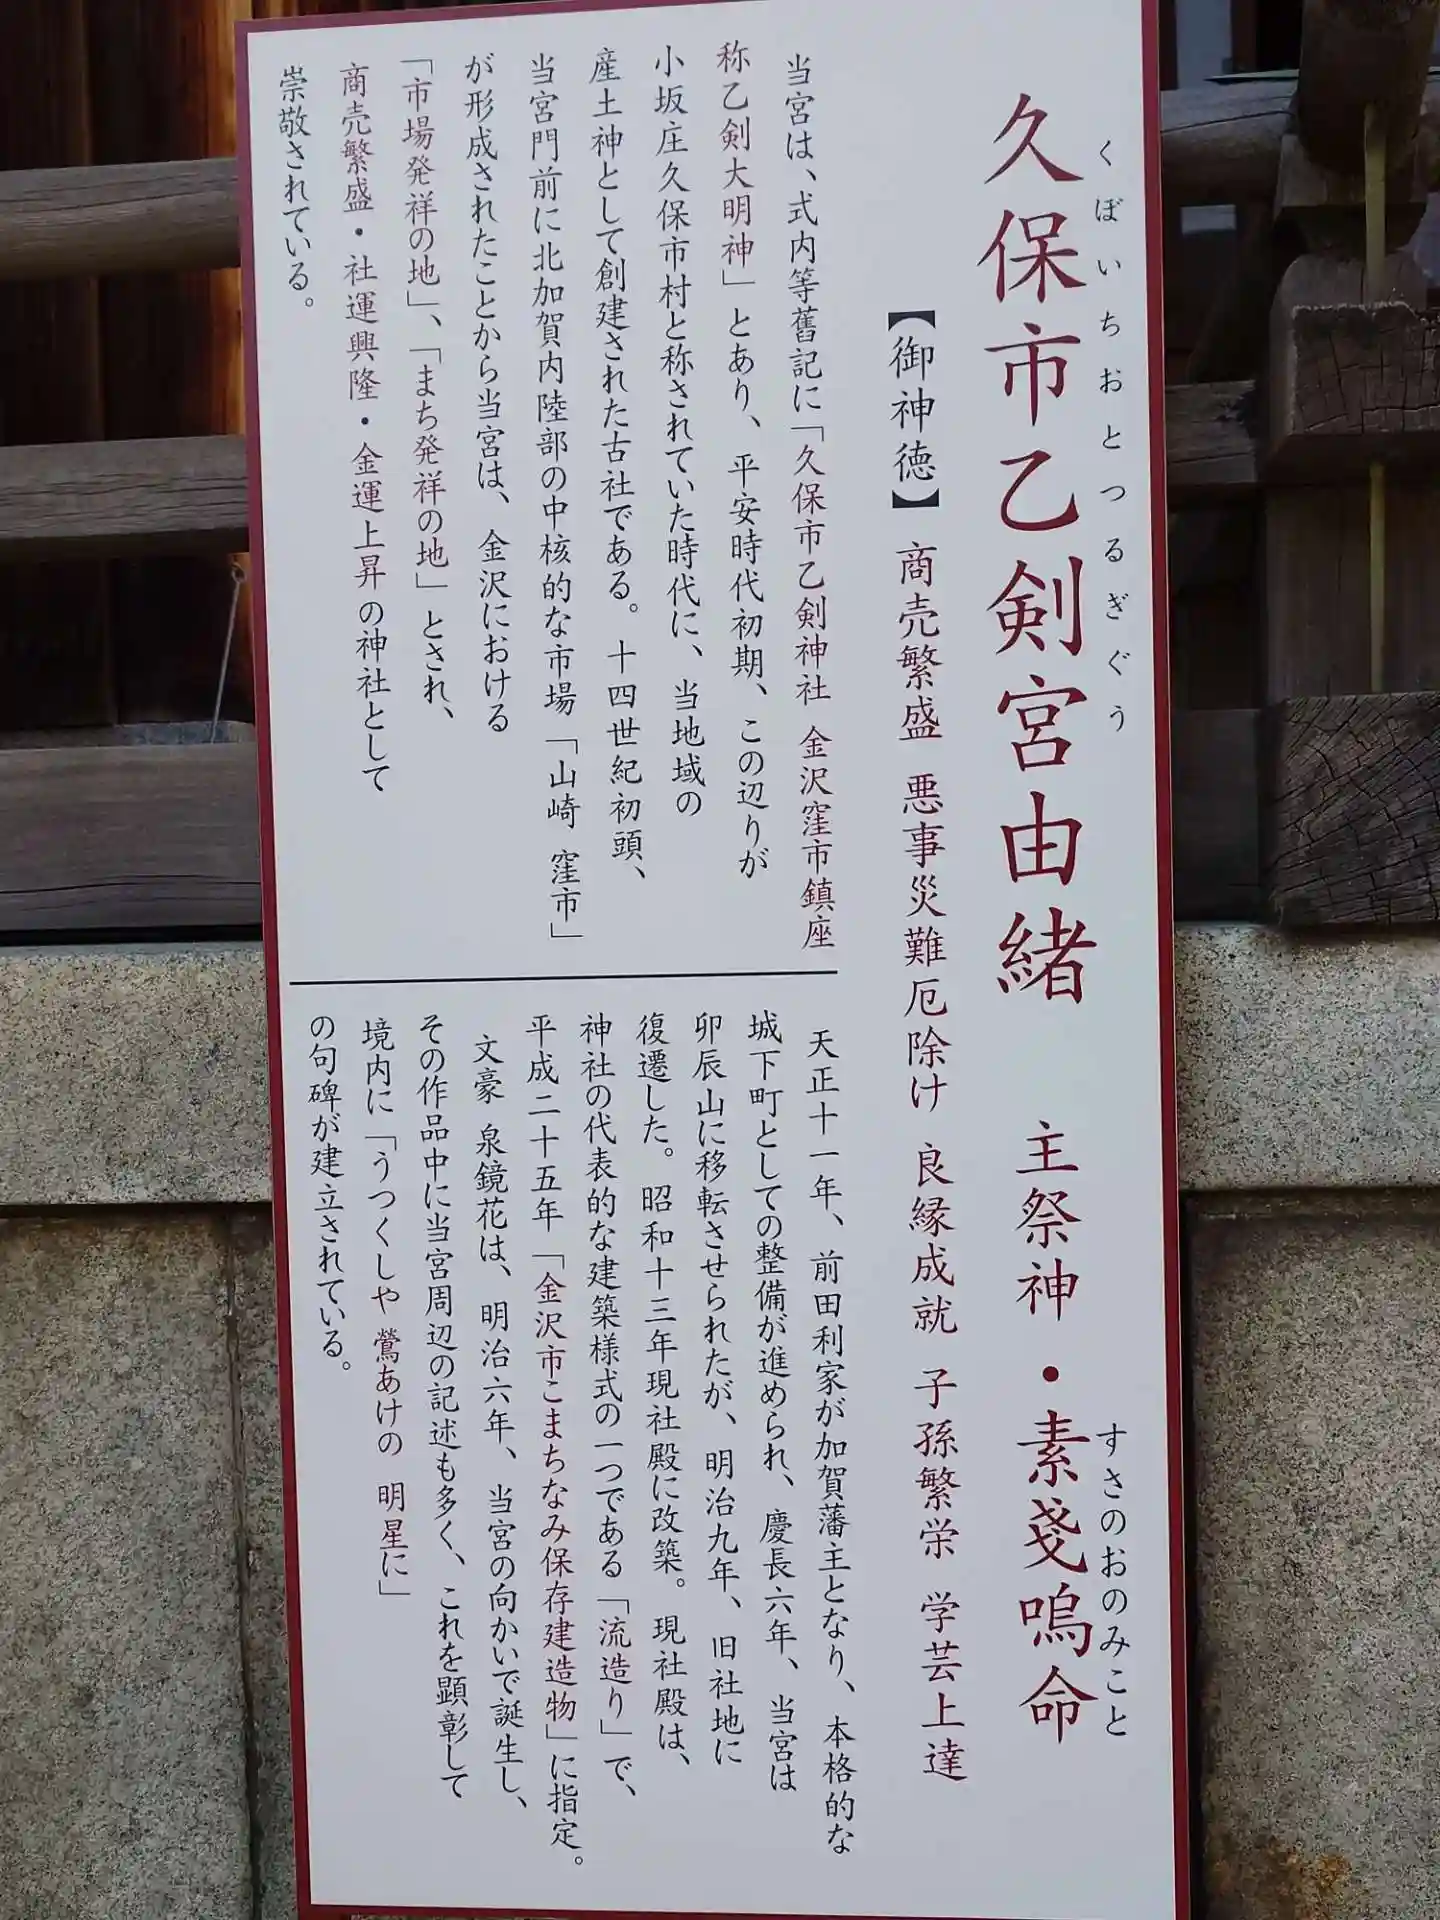 久保市乙剣宮由緒 主祭神・素戔嗚命
くぼいちおとつるぎぐう
すさのおのみこと
【御神徳】 商売繁盛 悪事災難厄除け 良縁成就 子孫繁栄 学芸上達
当宮は、式内等舊記に「久保市乙剣神社 金沢窪市鎮座
称乙剣大明神」とあり、平安時代初期、この辺りが
小坂庄久保市村と称されていた時代に、当地域の
産土神として創建された古社である。十四世紀初頭、
当宮門前に北加賀内陸部の中核的な市場「山崎 窪市」
が形成されたことから当宮は、金沢における
「市場発祥の地」、「まち発祥の地」とされ、
商売繁盛・社運興隆・金運上昇の神社として
崇敬されている。
天正十一年、前田利家が加賀藩主となり、本格的な
城下町としての整備が進められ、慶長六年、当宮は
卯辰山に移転させられたが、明治九年、旧社地に
復遷した。昭和十三年現社殿に改築。現社殿は、
神社の代表的な建築様式の一つである「流造り」で、
平成二十五年「金沢市こまちなみ保存建造物」に指定。
文豪 泉鏡花は、明治六年、当宮の向かいで誕生し、
その作品中に当宮周辺の記述も多く、これを顕彰して
境内に「うつくしや 鶯あけの 明星に」
の句碑が建立されている。